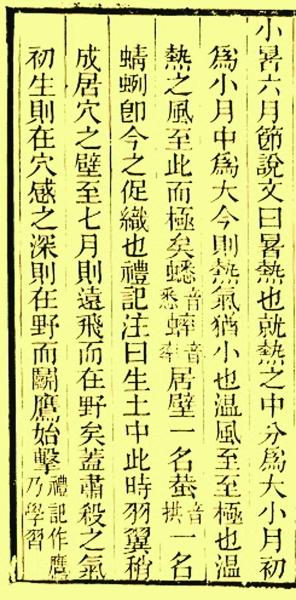 小暑六月節說文曰暑熱也就熱之中分爲大小月初
爲小月中爲大今則熱氣猶小也溫風至至極也溫
熱之風至此而極矣蟋音悉蟀音率居壁一名蛬音拱一名
蜻蛚卽今之促織也禮記注曰生土中此時羽翼稍
成居穴之壁至七月則遠飛而在野矣蓋肅殺之氣
初生則在穴感之深則在野而鬭鷹始擊禮記作鷹乃學習